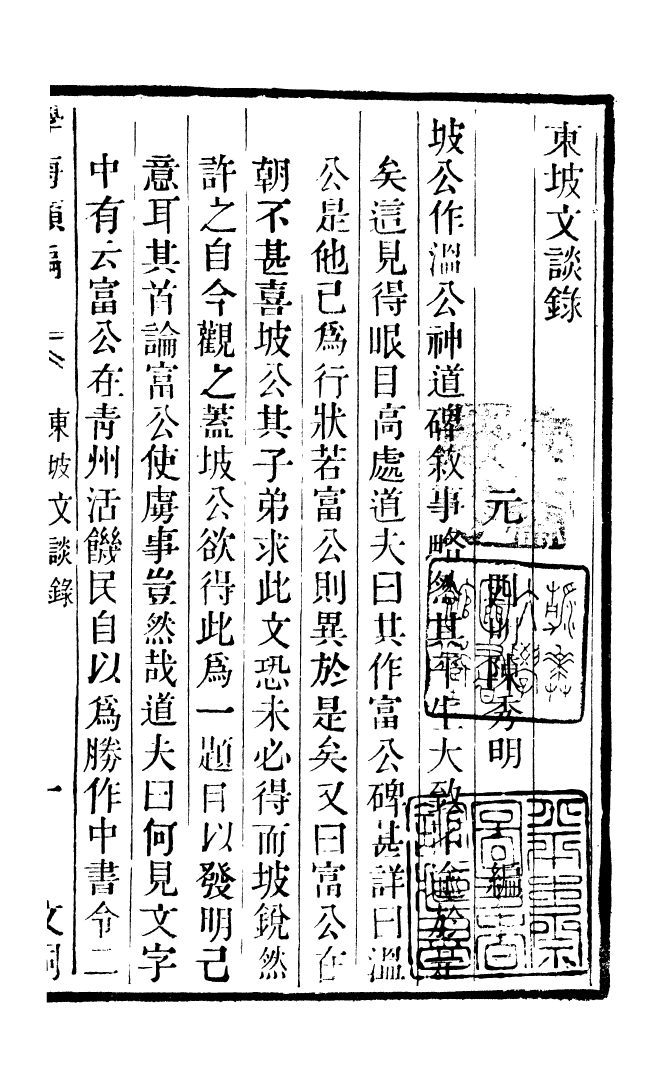 東坡文談錄
元 四明陳秀明 編
坡公作溫公神道碑敘事略然其平生大致不踰於是
矣這見得眼目高處道夫曰其作富公碑甚詳曰溫
公是他已爲行狀若富公則異於是矣又曰富公在
朝不甚喜坡公其子弟求此文恐未必得而坡銳然
許之自今觀之蓋坡公欲得此爲一題目以發明己
意耳其首論富公使虜事豈然哉道夫曰何見文字
中有云富公在青州活饑民自以爲勝作中書令二
學海類編 東坡文談錄 一